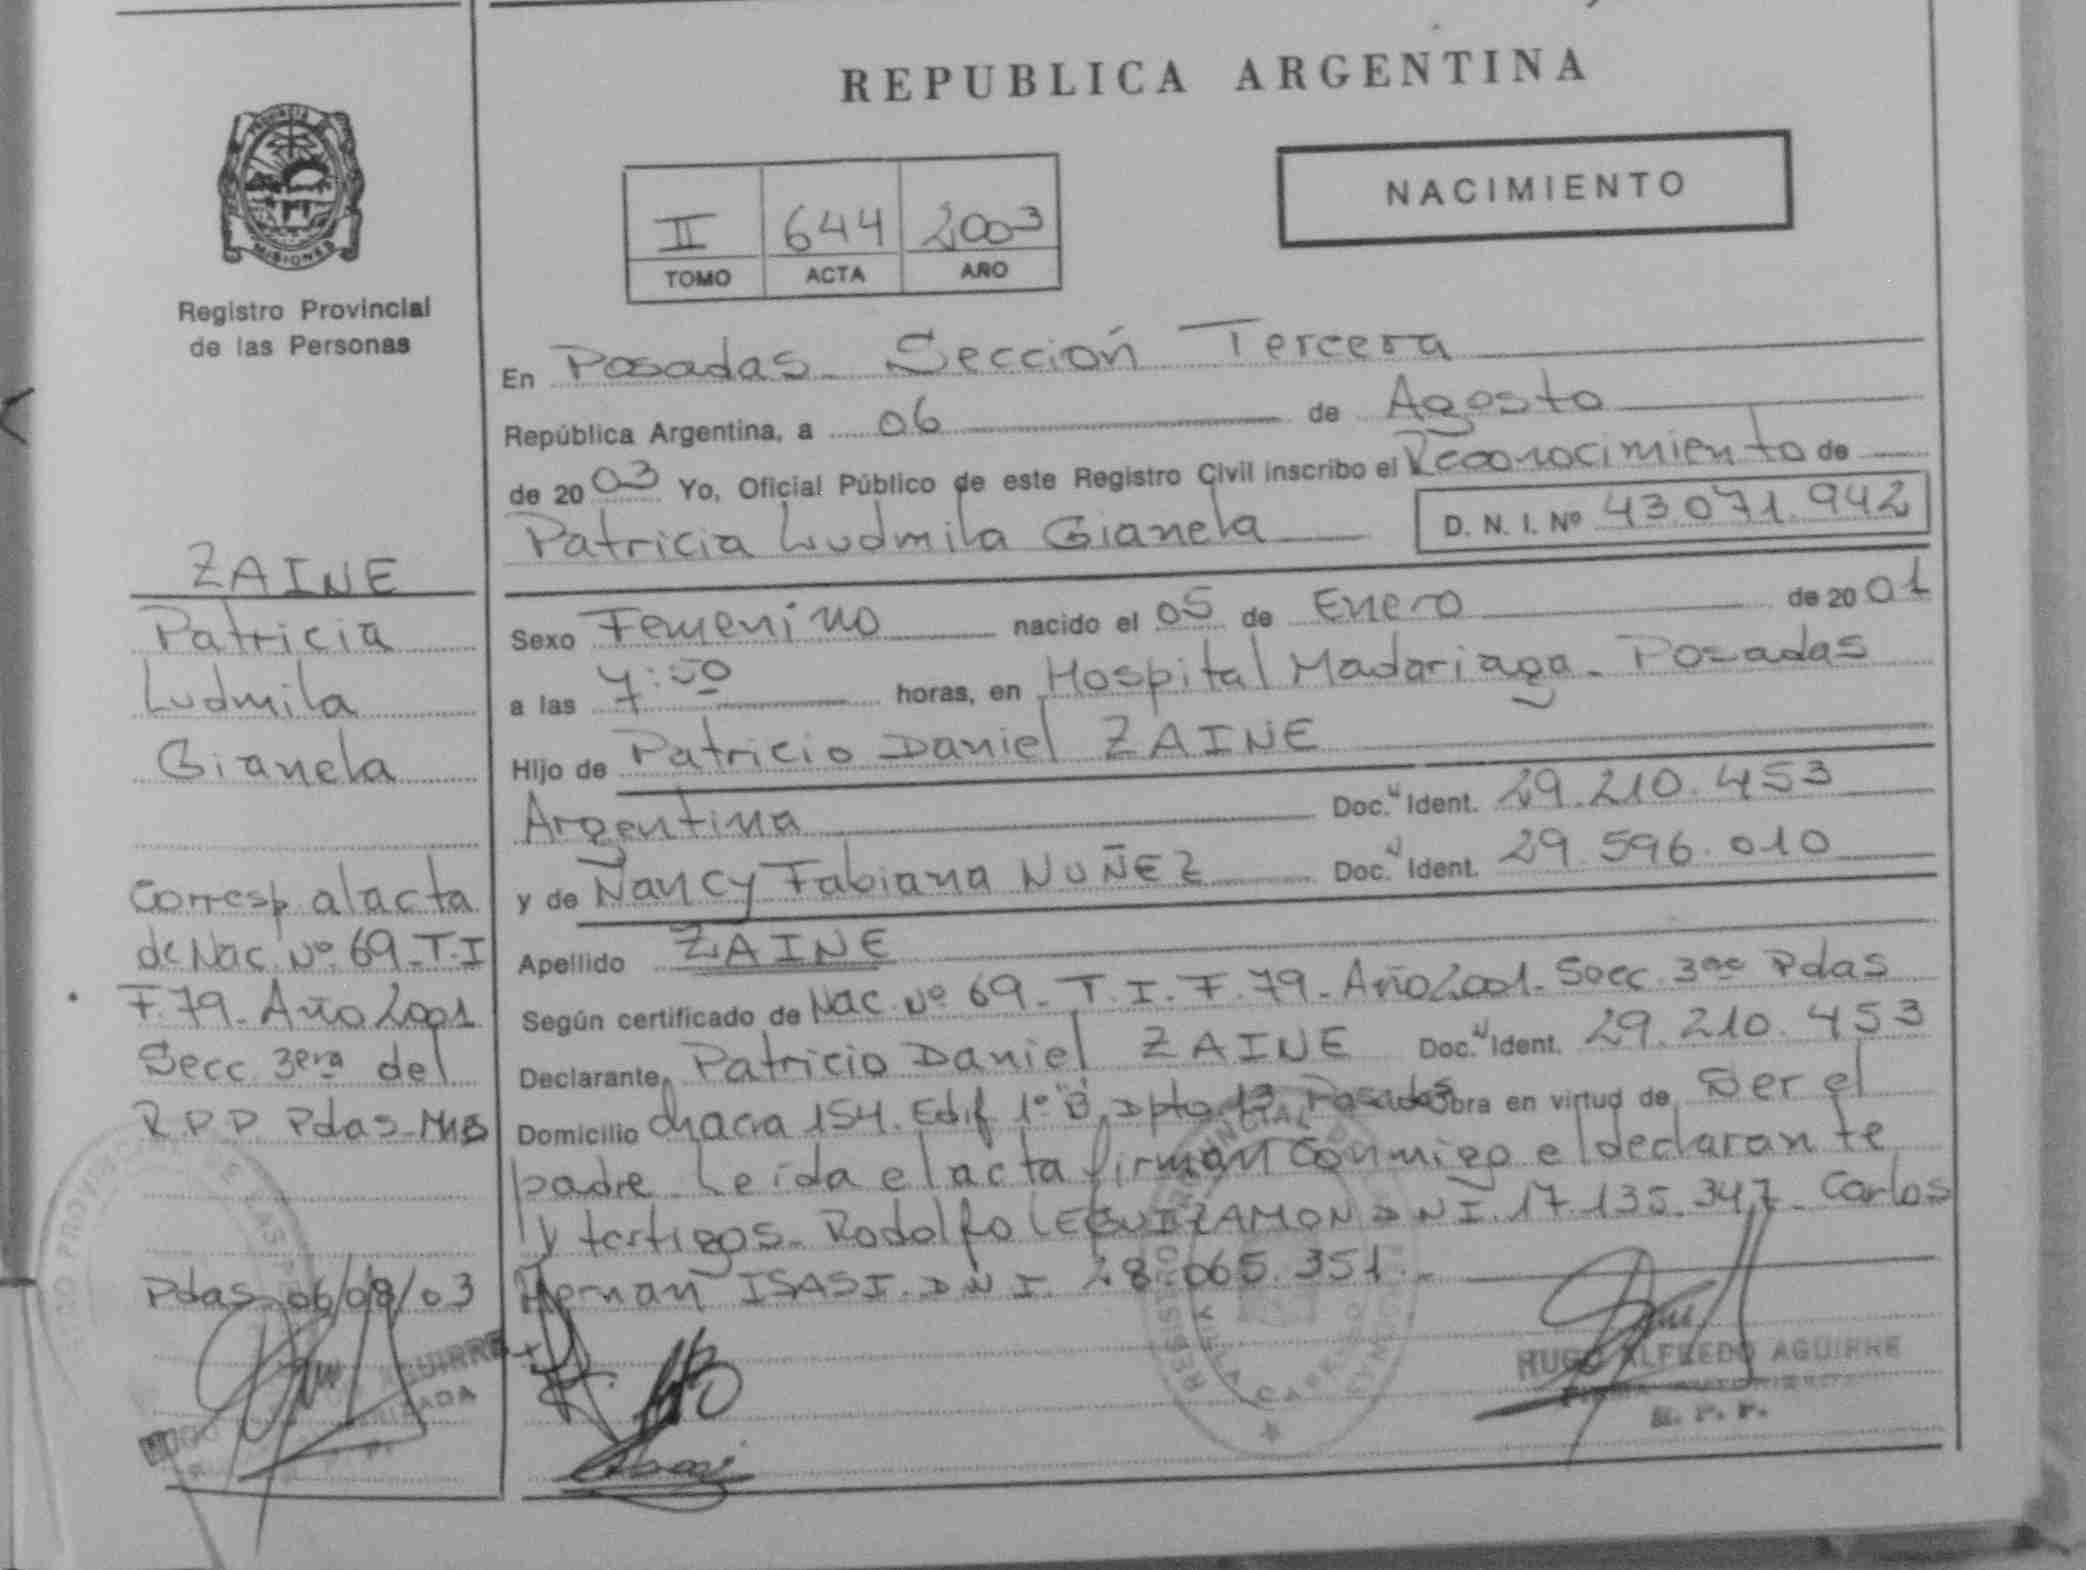 REPUBLICA ARGENTINA
PROVINCIA DE
MISIONES
Registro Provincial
de las Personas
II 644 2003
TOMO ACTA AÑO
NACIMIENTO
En Posadas - Sección Tercera
República Argentina, a 06 de Agosto
de 2003 Yo, Oficial Público de este Registro Civil inscribo el Reconocimiento de
Patricia Ludmila Gianela D. N. I. Nº 43.071.942
Sexo Femenino nacido el 05 de Enero de 2001
a las 7:50 horas, en Hospital Madariaga - Posadas
Hijo de Patricio Daniel ZAINE
Argentina Doc. Ident. 29.210.453
y de Nancy Fabiana NUÑEZ Doc. Ident. 29.596.010
Apellido ZAINE
Según certificado de Nac. Nº 69 - T. I. F. 79 - Año 2001 - Secc. 3ra Pdas
Declarante Patricio Daniel ZAINE Doc. Ident. 29.210.453
Domicilio chacra 154. Edif 1º "B", Dpto. 13 Posadas obra en virtud de Ser el
padre Leída el acta firman conmigo el declarante
y testigos - Rodolfo LEGUIZAMON D N I. 17.135.347 - Carlos
Hernan ISASI. D N I. 28.065.351. -
ZAINE
Patricia
Ludmila
Gianela
Corresp. al acta
de Nac. Nº 69 - T. I
F. 79 - Año 2001
Secc. 3era del
R. P. P. Pdas - Mns
Pdas 06/08/03
AGUIRRE
HUGO ALFREDO AGUIRRE
FIRMA AUTORIZADA
R. P. P.